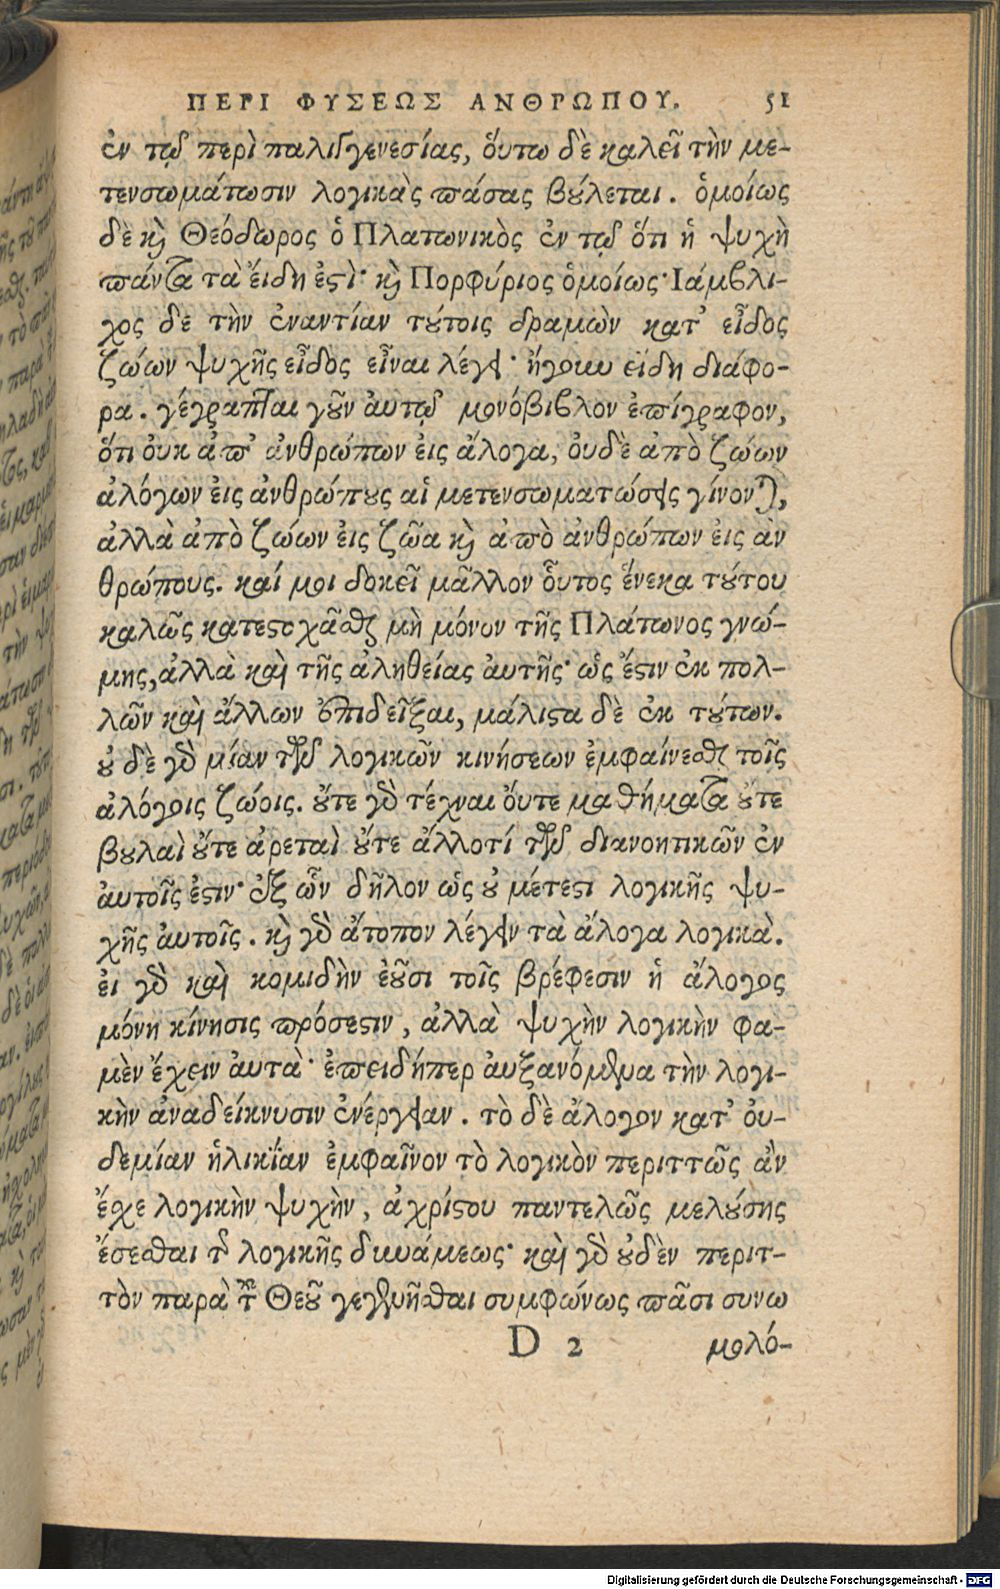 ΠΕΡΙ ΦΥΣΕΩΣ ΑΝΘΡΩΠΟΥ. 51
ἐν τῷ περὶ παλιγγενεσίας, ὅυτω δὲ καλεῖ τὴν με-
τενσωμάτωσιν λογικὰς πάσας βούλεται. ὁμοίως
δὲ καὶ Θεόδωρος ὁ Πλατωνικὸς ἐν τῷ ὅτι ἡ ψυχὴ
πάντα τὰ ἔιδη ἐστί· καὶ Πορφύριος ὁμοίως· Ιάμβλι-
χος δε τὴν ἐναντίαν τούτοις δραμὼν κατ' εἶδος
ζώων ψυχῆς εἶδος εἶναι λέγει· ἤγουν εἴδη διάφο-
ρα. γέγραπται γοῦν ἀυτῷ μονόβιβλον ἐπίγραφον,
ὅτι ὀυκ ἀπ' ἀνθρώπων ἐις ἄλογα, ὀυδὲ ἀπὸ ζώων
ἀλόγων ἐις ἀνθρώπους αἱ μετενσωματώσεις γίνονται,
ἀλλὰ ἀπὸ ζώων ἐις ζῶα καὶ ἀπὸ ἀνθρώπων ἐις ἀν
θρώπους. καί μοι δοκεῖ μᾶλλον οὗτος ἕνεκα τούτου
καλῶς κατεστοχᾶσθαι μὴ μόνον τῆς Πλάτωνος γνώ-
μης, ἀλλὰ καὶ τῆς ἀληθείας ἀυτῆς· ὡς ἔστιν ἐκ πολ-
λῶν καὶ ἄλλων ἐπιδεῖξαι, μάλιστα δὲ ἐκ τούτων.
οὐ δὲ γὰρ μίαν τῶν λογικῶν κινήσεων ἐμφαίνεσθαι τοῖς
ἀλόγοις ζώοις. οὔτε γὰρ τέχναι ὄυτε μαθήματα οὔτε
βουλαὶ οὔτε ἀρεταὶ οὔτε ἄλλοτί τῶν διανοητικῶν ἐν
ἀυτοῖς ἐστιν· ἐξ ὧν δῆλον ὡς οὐ μέτεστι λογικῆς ψυ-
χῆς ἀυτοῖς. καὶ γὰρ ἄτοπον λέγειν τὰ ἄλογα λογικά.
ἐι γὰρ καὶ κομιδὴν ἐοῦσι τοῖς βρέφεσιν ἡ ἄλογος
μόνη κίνησις πρόσεστιν, ἀλλὰ ψυχὴν λογικὴν φα-
μὲν ἔχειν ἀυτὰ· ἐπειδήπερ ἀυξανόμενα τὴν λογι-
κὴν ἀναδείκνυσιν ἐνέργειαν. τὸ δὲ ἄλογον κατ' ὀυ-
δεμίαν ἡλικίαν ἐμφαῖνον τὸ λογικὸν περιττῶς ἂν
ἔιχε λογικὴν ψυχὴν, ἀχρίστου παντελῶς μελούσης
ἔσεσθαι τῆς λογικῆς δυνάμεως· καὶ γὰρ οὐδὲν περιτ-
τὸν παρὰ τοῦ Θεοῦ γεγενῆσθαι συμφώνως πᾶσι συνω
D 2 μολό-
Digitalisierung gefördert durch die Deutsche Forschungsgemeinschaft - DFG